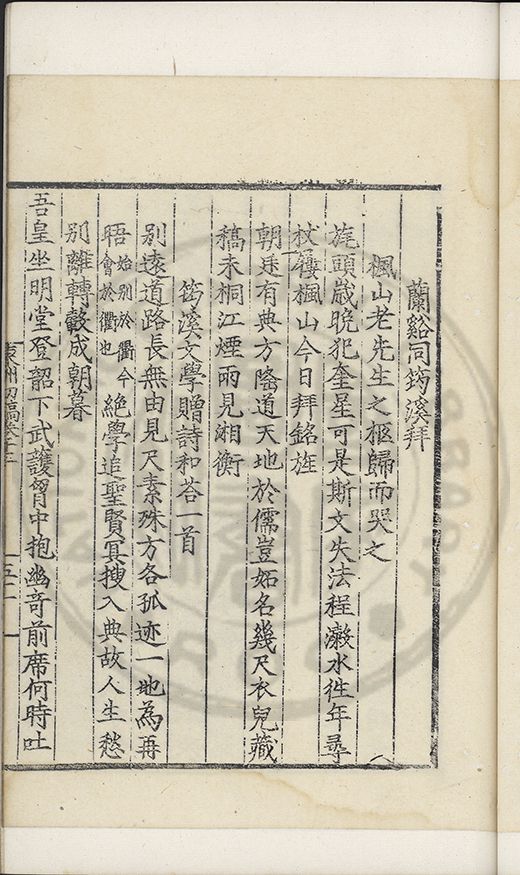 蘭谿同筠溪拜
楓山老先生之柩歸而哭之
旄頭歲晚犯奎星可是斯文失法程瀫水徃年尋
杖屨楓山今日拜銘旌
朝廷有典方隆道天地於儒豈妬名幾尺衣兒藏
稿未桐江煙雨見湘衡
筠溪文學贈詩和荅一首
别遠道路長無由見尺素殊方各孤迹一地為再
晤始别於衢今會於衢也絶學追聖賢冥搜入典故人生愁
别離轉轂成朝暮
吾皇坐明堂登韶下武頀胷中抱幽奇前席何時吐
東洲初稿卷十三